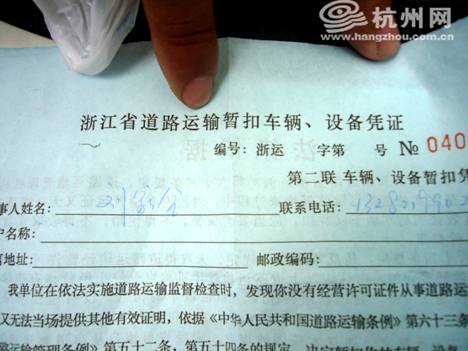 杭州网
www.hangzhou.com.cn
浙江省道路运输暂扣车辆、设备凭证
编号：浙运 字第 号 № 040
第二联 车辆、设备暂扣凭
事人姓名： 联系电话：
户名称：
地址： 邮政编码：
我单位在依法实施道路运输监督检查时，发现你没有经营许可证件从事道路运
又无法当场提供其他有效证明，依据《中华人民共和国道路运输条例》第六十三
路运输管理条例》第五十二条，第五十四条的规定，决定暂扣你的车辆